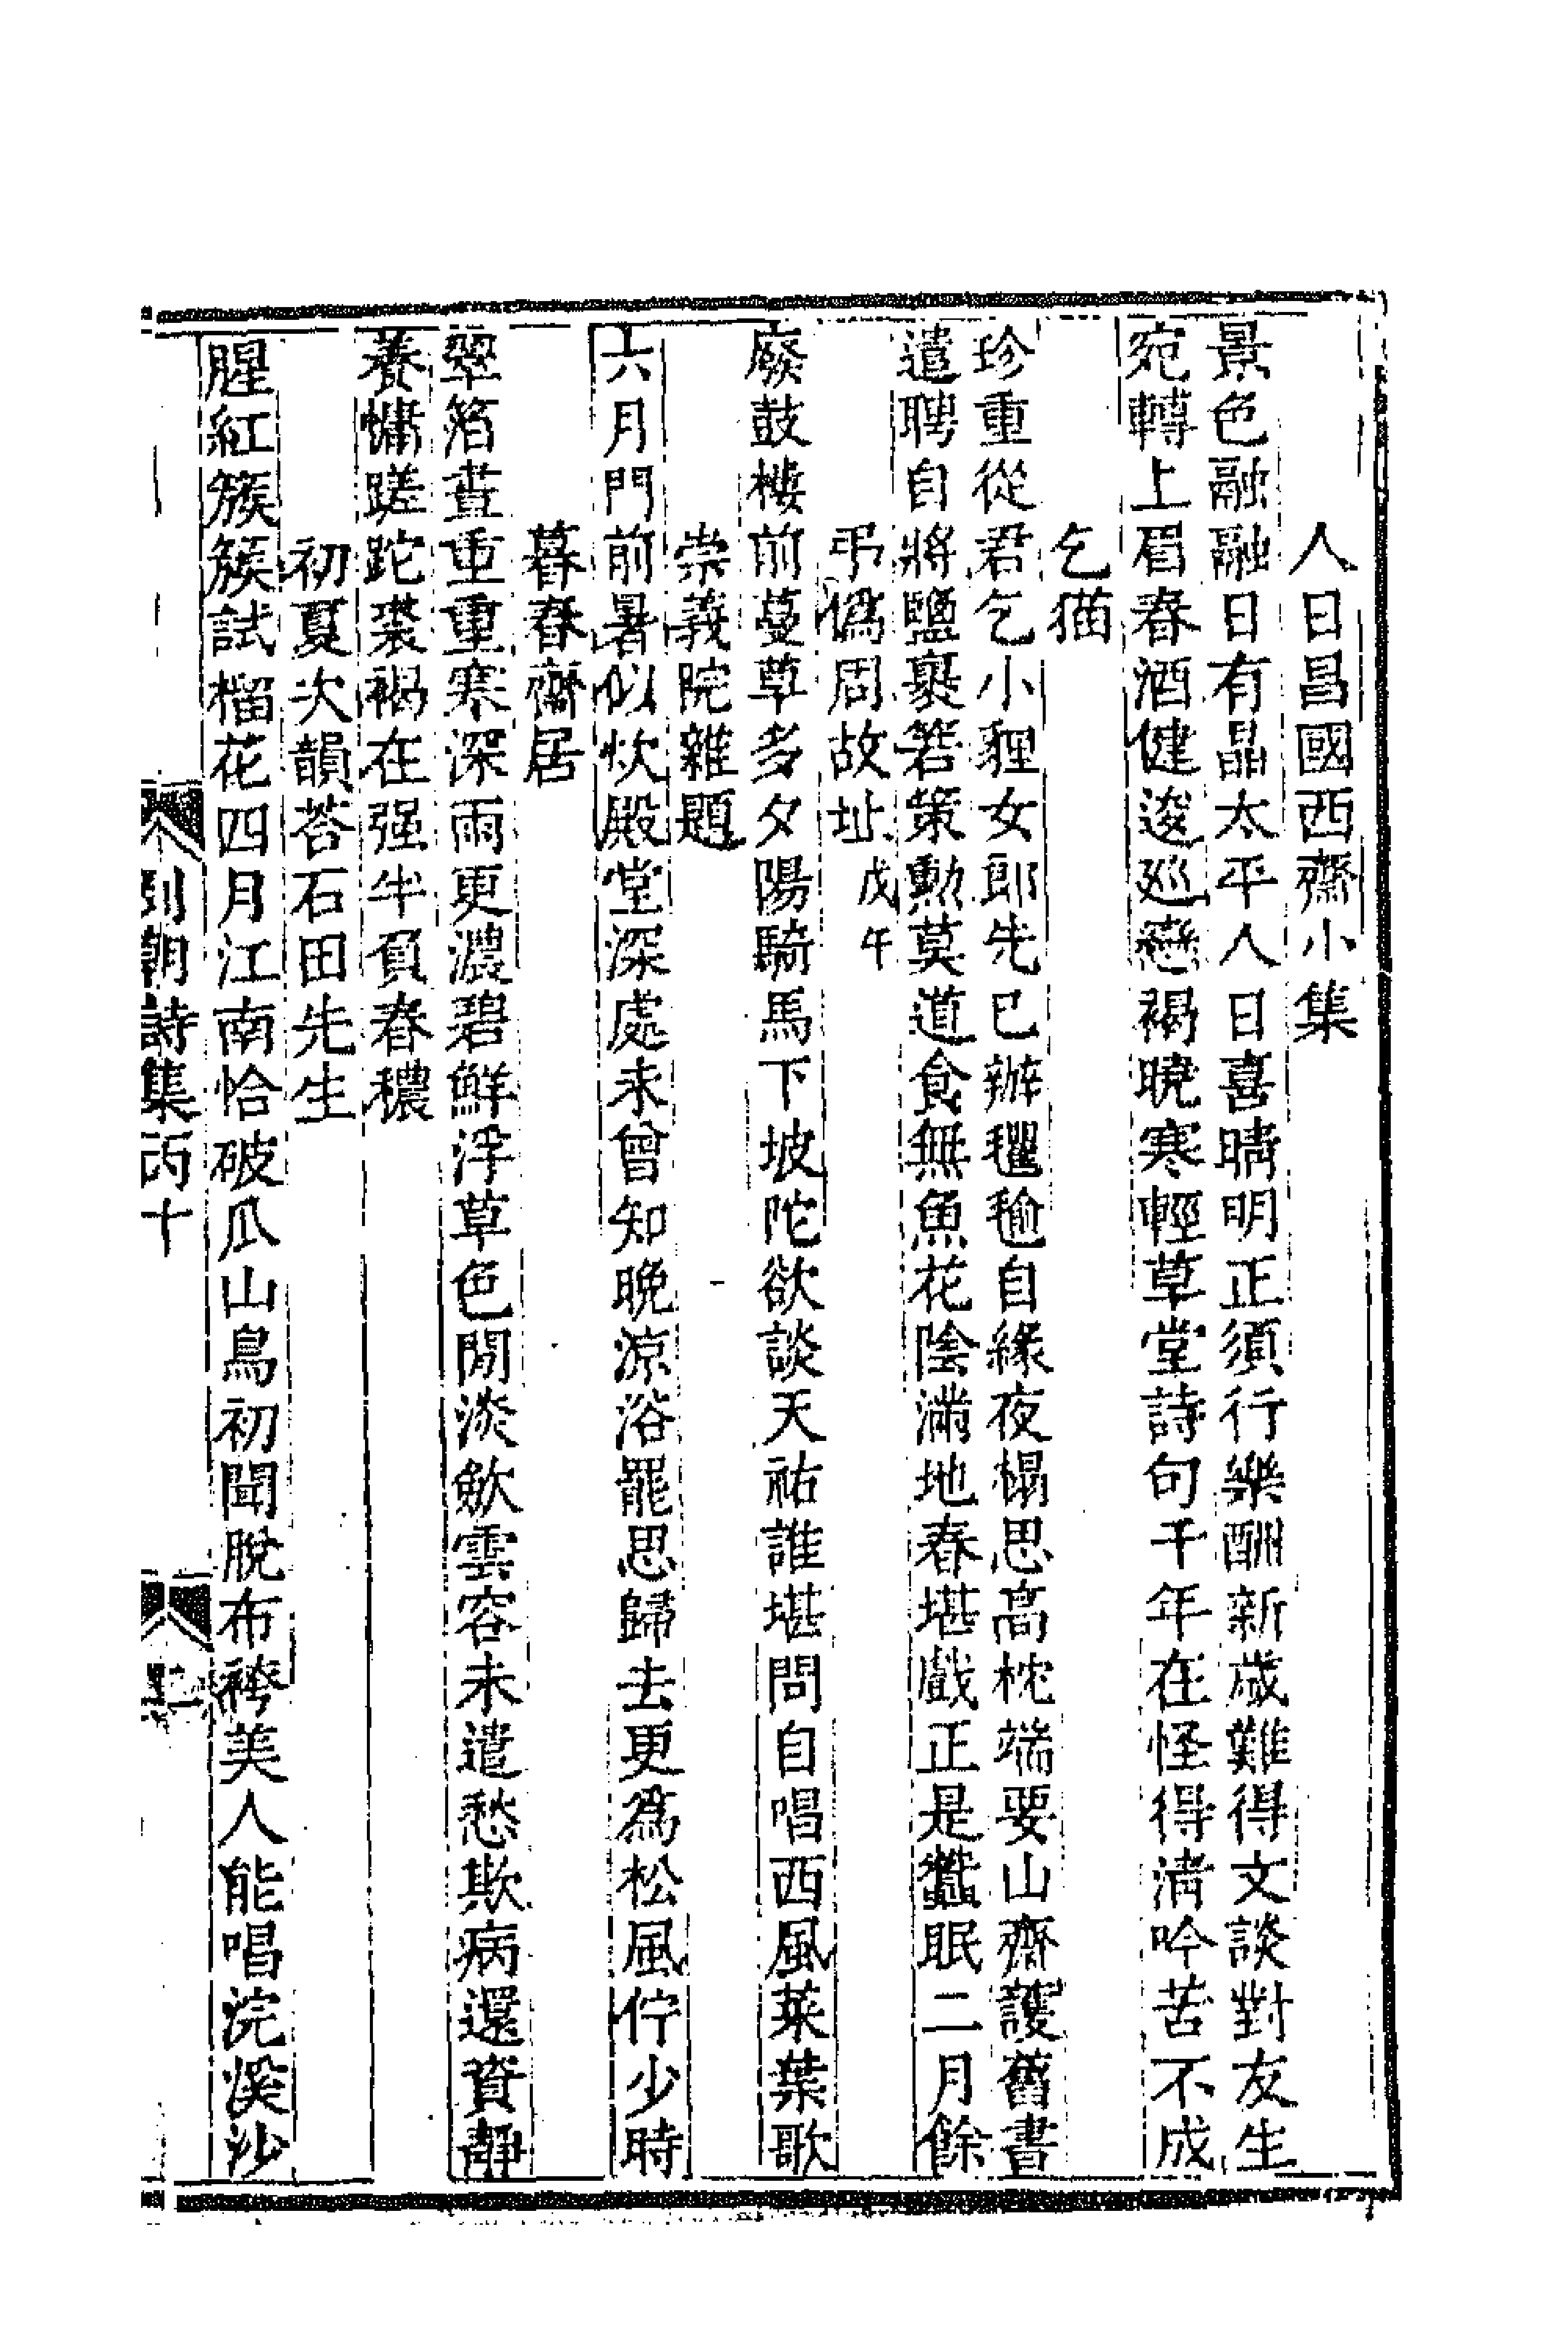 人日昌國西齋小集
景色融融日有晶太平人日喜晴明正須行樂酬新歲難得文談對友生
宛轉上眉春酒健逡廵戀褐曉寒輕草堂詩句千年在怪得清吟苦不成
乞猫
珍重從君乞小狸女郎先已辦氍毹自緣夜榻思高枕端要山齋護舊書
遣聘自將鹽裹箬策勳莫道食無魚花陰滿地春堪戲正是蠶眠二月餘
弔僞周故址戊午
廢鼓樓前蔓草多夕陽騎馬下坡陀欲談天祐誰堪問自唱西風萊葉歌
崇義院雜題
六月門前暑似炊殿堂深處未曾知晚凉浴罷思歸去更爲松風佇少時
暮春齋居
翠箔晝重重寒深雨更濃碧鮮浮草色閒淡斂雲容未遣愁欺病還資靜
養慵蹉跎裘褐在强半負春穠
初夏次韻荅石田先生
腥紅簇簇試榴花四月江南恰破瓜山鳥初聞脫布袴美人能唱浣溪沙
列朝詩集丙十